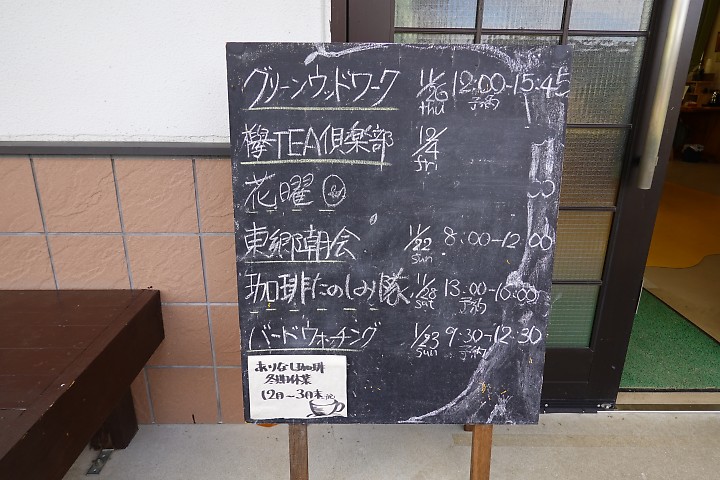 グリーンウッドワーク 11/26 thu 12:00-15:45 予約
欅TEA倶楽部 12/4 fri
花曜
東郷朝会 11/22 sun 8:00-12:00
珈琲たのしみ隊 11/28 sat 13:00-16:00 予約
バードウォッチング 1/23 sun 9:30-12:30 予約
ありなし珈琲
冬期休業
12月〜3月末